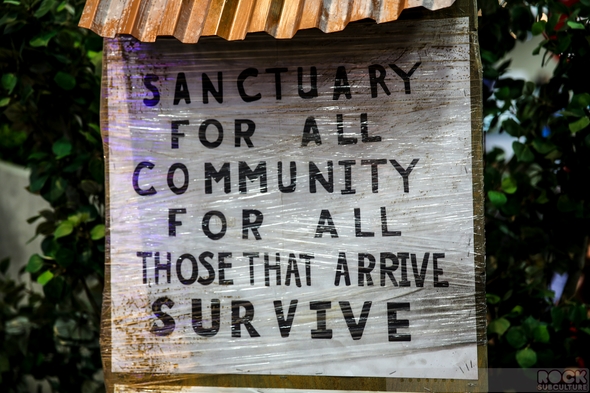 SANCTUARY
FOR ALL
COMMUNITY
FOR ALL
THOSE THAT ARRIVE
SURVIVE
ROCK
SUBCULTURE